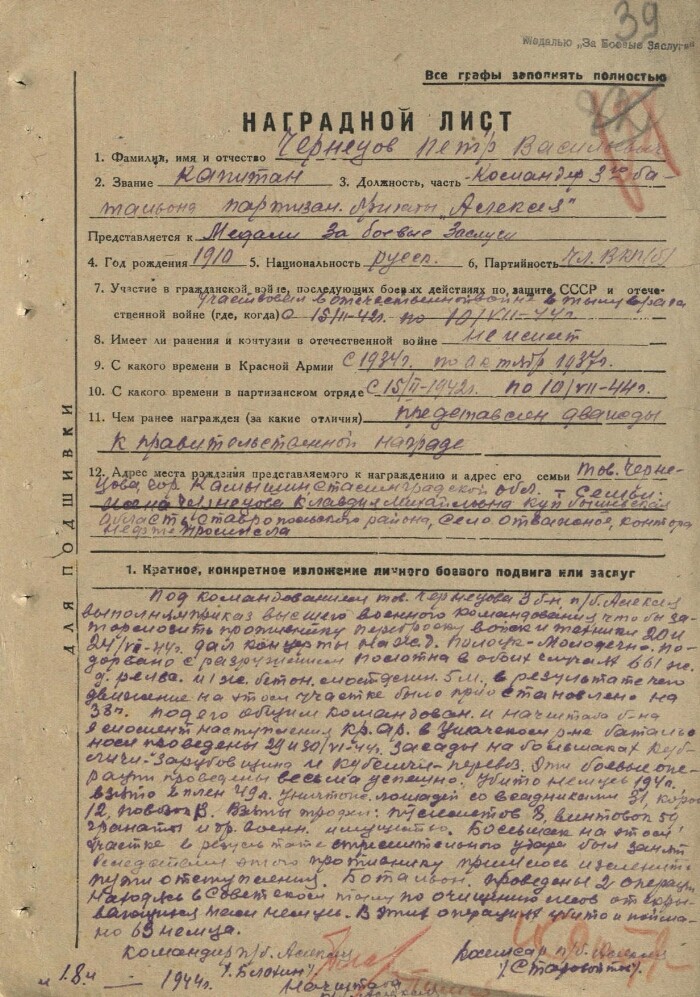 39
Медалью „За Боевые Заслуги"
Все графы заполнять полностью
НАГРАДНОЙ ЛИСТ
1. Фамилия, имя и отчество Чернецов Петр Васильевич
2. Звание Капитан 3. Должность, часть Командир 3го ба-
тальона партизан. бригады „Алексея"
Представляется к Медали За боевые Заслуги
4. Год рождения 1910 5. Национальность русск. 6. Партийность чл. ВКП(б)
7. Участие в гражданской войне, последующих боевых действиях по защите СССР и отече-
участвовал в отечественной войне в тылу врага
ственной войне (где, когда) с 15/II-42г. по 10/VII-44г.
8. Имеет ли ранения и контузии в отечественной войне не имеет
9. С какого времени в Красной Армии с 1934г. по октябр 1937г.
10. С какого времени в партизанском отряде с 15/II-1942г. по 10/VII-44г.
11. Чем ранее награжден (за какие отличия) представлен дважды
к правительственной награде
12. Адрес места рождения представляемого к награждению и адрес его семьи тов. Черне-
цова гор. Камышин Сталинградской обл. Семьи:
жена Чернецова Клавдия Михайловна Куйбышевская
область, Ставропольского района, село Отважное, контора
Нефтепромысла
ДЛЯ ПОДШИВКИ
1. Краткое, конкретное изложение личного боевого подвига или заслуг
Под командованием тов. Чернецова 3 б-н п/б. Алексея
выполняя приказ высшего военного командования чтобы за-
тормозить противнику переброску войск и техники 20 и
24/VI-44г. дал концерты на ж.д. Полоцк-Молодечно. По-
дорвано с разрушением полотна в обоих случаях 661 ж.
д. рельс. и 1 ж. бетон. мост длин. 5 м., в результате чего
движение на этом участке было приостановлено на
38ч. Под его общим командован. и начштаба б-на
в момент наступления Кр. Ар. в Ушачском р-не баталь-
оном проведены 29 и 30/VI-44г. засады на большаках Куб-
личи-Зарубовщина и Кубличи-Перевоз. Эти боевые опе-
рации проведены весьма успешно. Убито немцев 194 ч.
взято в плен 49 ч. Уничтож. лошадей со всадниками 31,
12, повозок Взяты трофеи: пулеметов 8, винтовок 59
гранаты и др. военн. имущество. Большак на этом
участке в результате стремительного удара был занят
вследствии этого противнику пришлось изменить
пути отступления. Батальон. проведены 2 операци
находясь в Советском тылу по очищению лесов от скры-
вающихся там немцев. В этих операциях убито и пойма-
но 63 немца.
Командир п/б. Алексея Комиссар п/б. Алексея
/Белохин/ /Старовойтов/
„18" 1944г. Начштаба